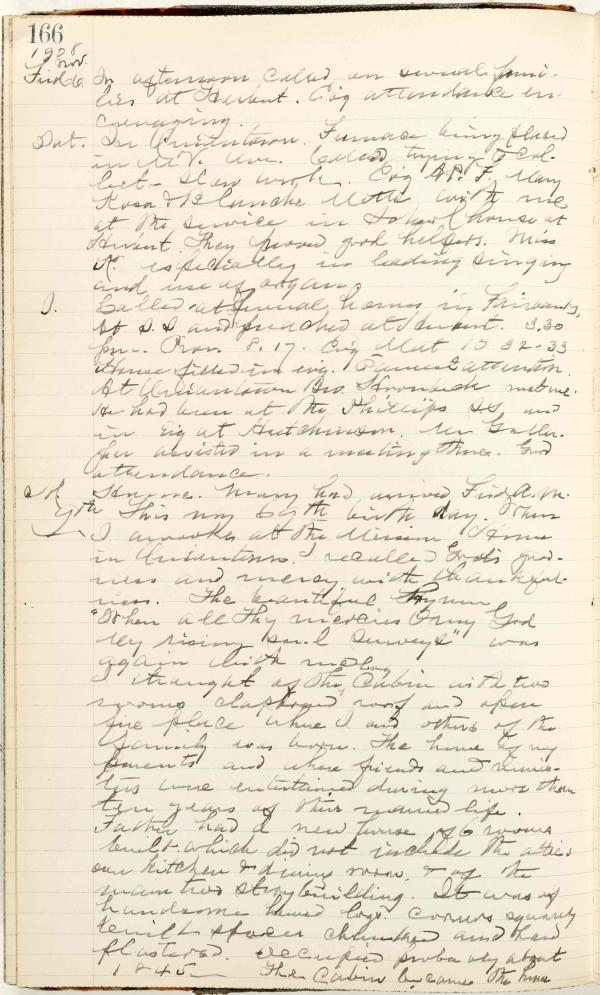 166
1928
Nov.
Frid 6. In afternoon called on several fami-
lies at Herbert. Evg attendance en-
couraging.
Sat. In Uniontown. Furnace being placed
in Mt. V. Ave. Called trying to col-
lect - slow work. Evg F. Mary
Rosa & Blanche Motts with me
at the service in School house at
Herbert. They proved good helpers. Miss
R. especially in leading singing
and use of organ.
S. Called at several homes in Fairbanks,
At S.S and preached at Herbert. 3.30
pm. Prov. 8.17. Evg Mat 10 32-33
House filled in evg. Earnest attention.
At Uniontown Bro. met me.
He had been at the Phillips SS and
in Evg at Hutchinson. Mr
assisted in a meeting there. Good
attendance.
Home. Mary had arrived Frid A.M.
9th This my birth day. When
I awoke at the Mission Home
in Uniontown I recalled God's good-
ness and mercy with thankful-
ness. The beautiful Hymn
"When all Thy mercies O my God
My rising soul surveys" was
again with me
I thought of the log Cabin with two
rooms clapboard roof and open
fire place where I and others of the
family was born. The home of my
parents and where friends and minis-
ters were entertained during more than
ten years of their married life.
Father had a new house of 6 rooms
built which did not include the attic
our kitchen & dining room, & of the
main two story building. It was of
handsome hewed logs. Corners squarely
built spaces chunked and hard
plastered. Occupied probably about
1845 The Cabin became the home